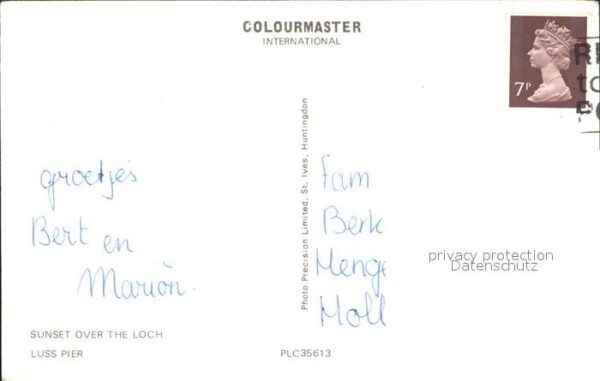 COLOURMASTER
INTERNATIONAL
7P
groetjes
Bert en
Marion
Photo Precision Limited, St. Ives, Huntingdon
fam
Berk
Henge
Holl
privacy protection
Datenschutz
SUNSET OVER THE LOCH
LUSS PIER
PLC35613